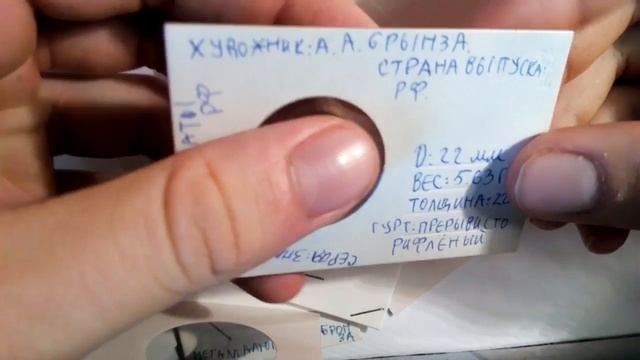 ХУДОЖНИК: А. А. БРЫНЗА.
СТРАНА ВЫПУСКА:
РФ.
РФ
D: 22 мм
ВЕС: 5.63 Г
ТОЛЩИНА: 22
ГУРТ: ПРЕРЫВИСТО
РИФЛЁНЫЙ
СЕРИЯ:
БРОН
ЗА